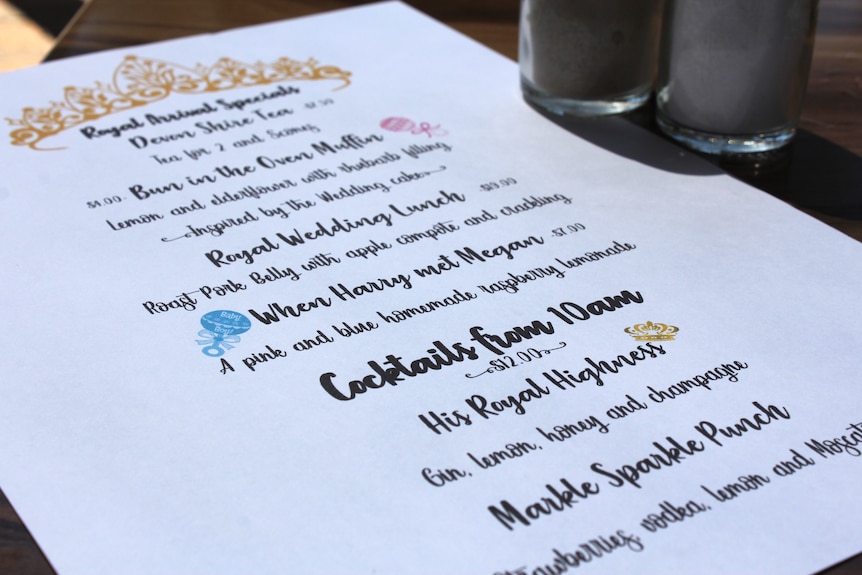 Royal Arrival Specials
Devon Shire Tea $7.50
Tea for 2 and Scones
$4.00 Bun in the Oven Muffin
Lemon and elderflower with rhubarb filling
Inspired by the Wedding cake
Royal Wedding Lunch
Roast Pork Belly with apple compote and crackling
When Harry met Megan $7.00
A pink and blue homemade raspberry lemonade
Baby Boy!
Cocktails from 10am
$12.00
His Royal Highness
Gin, lemon, honey and champagne
Markle Sparkle Punch
Strawberries, vodka, lemon and Moscat